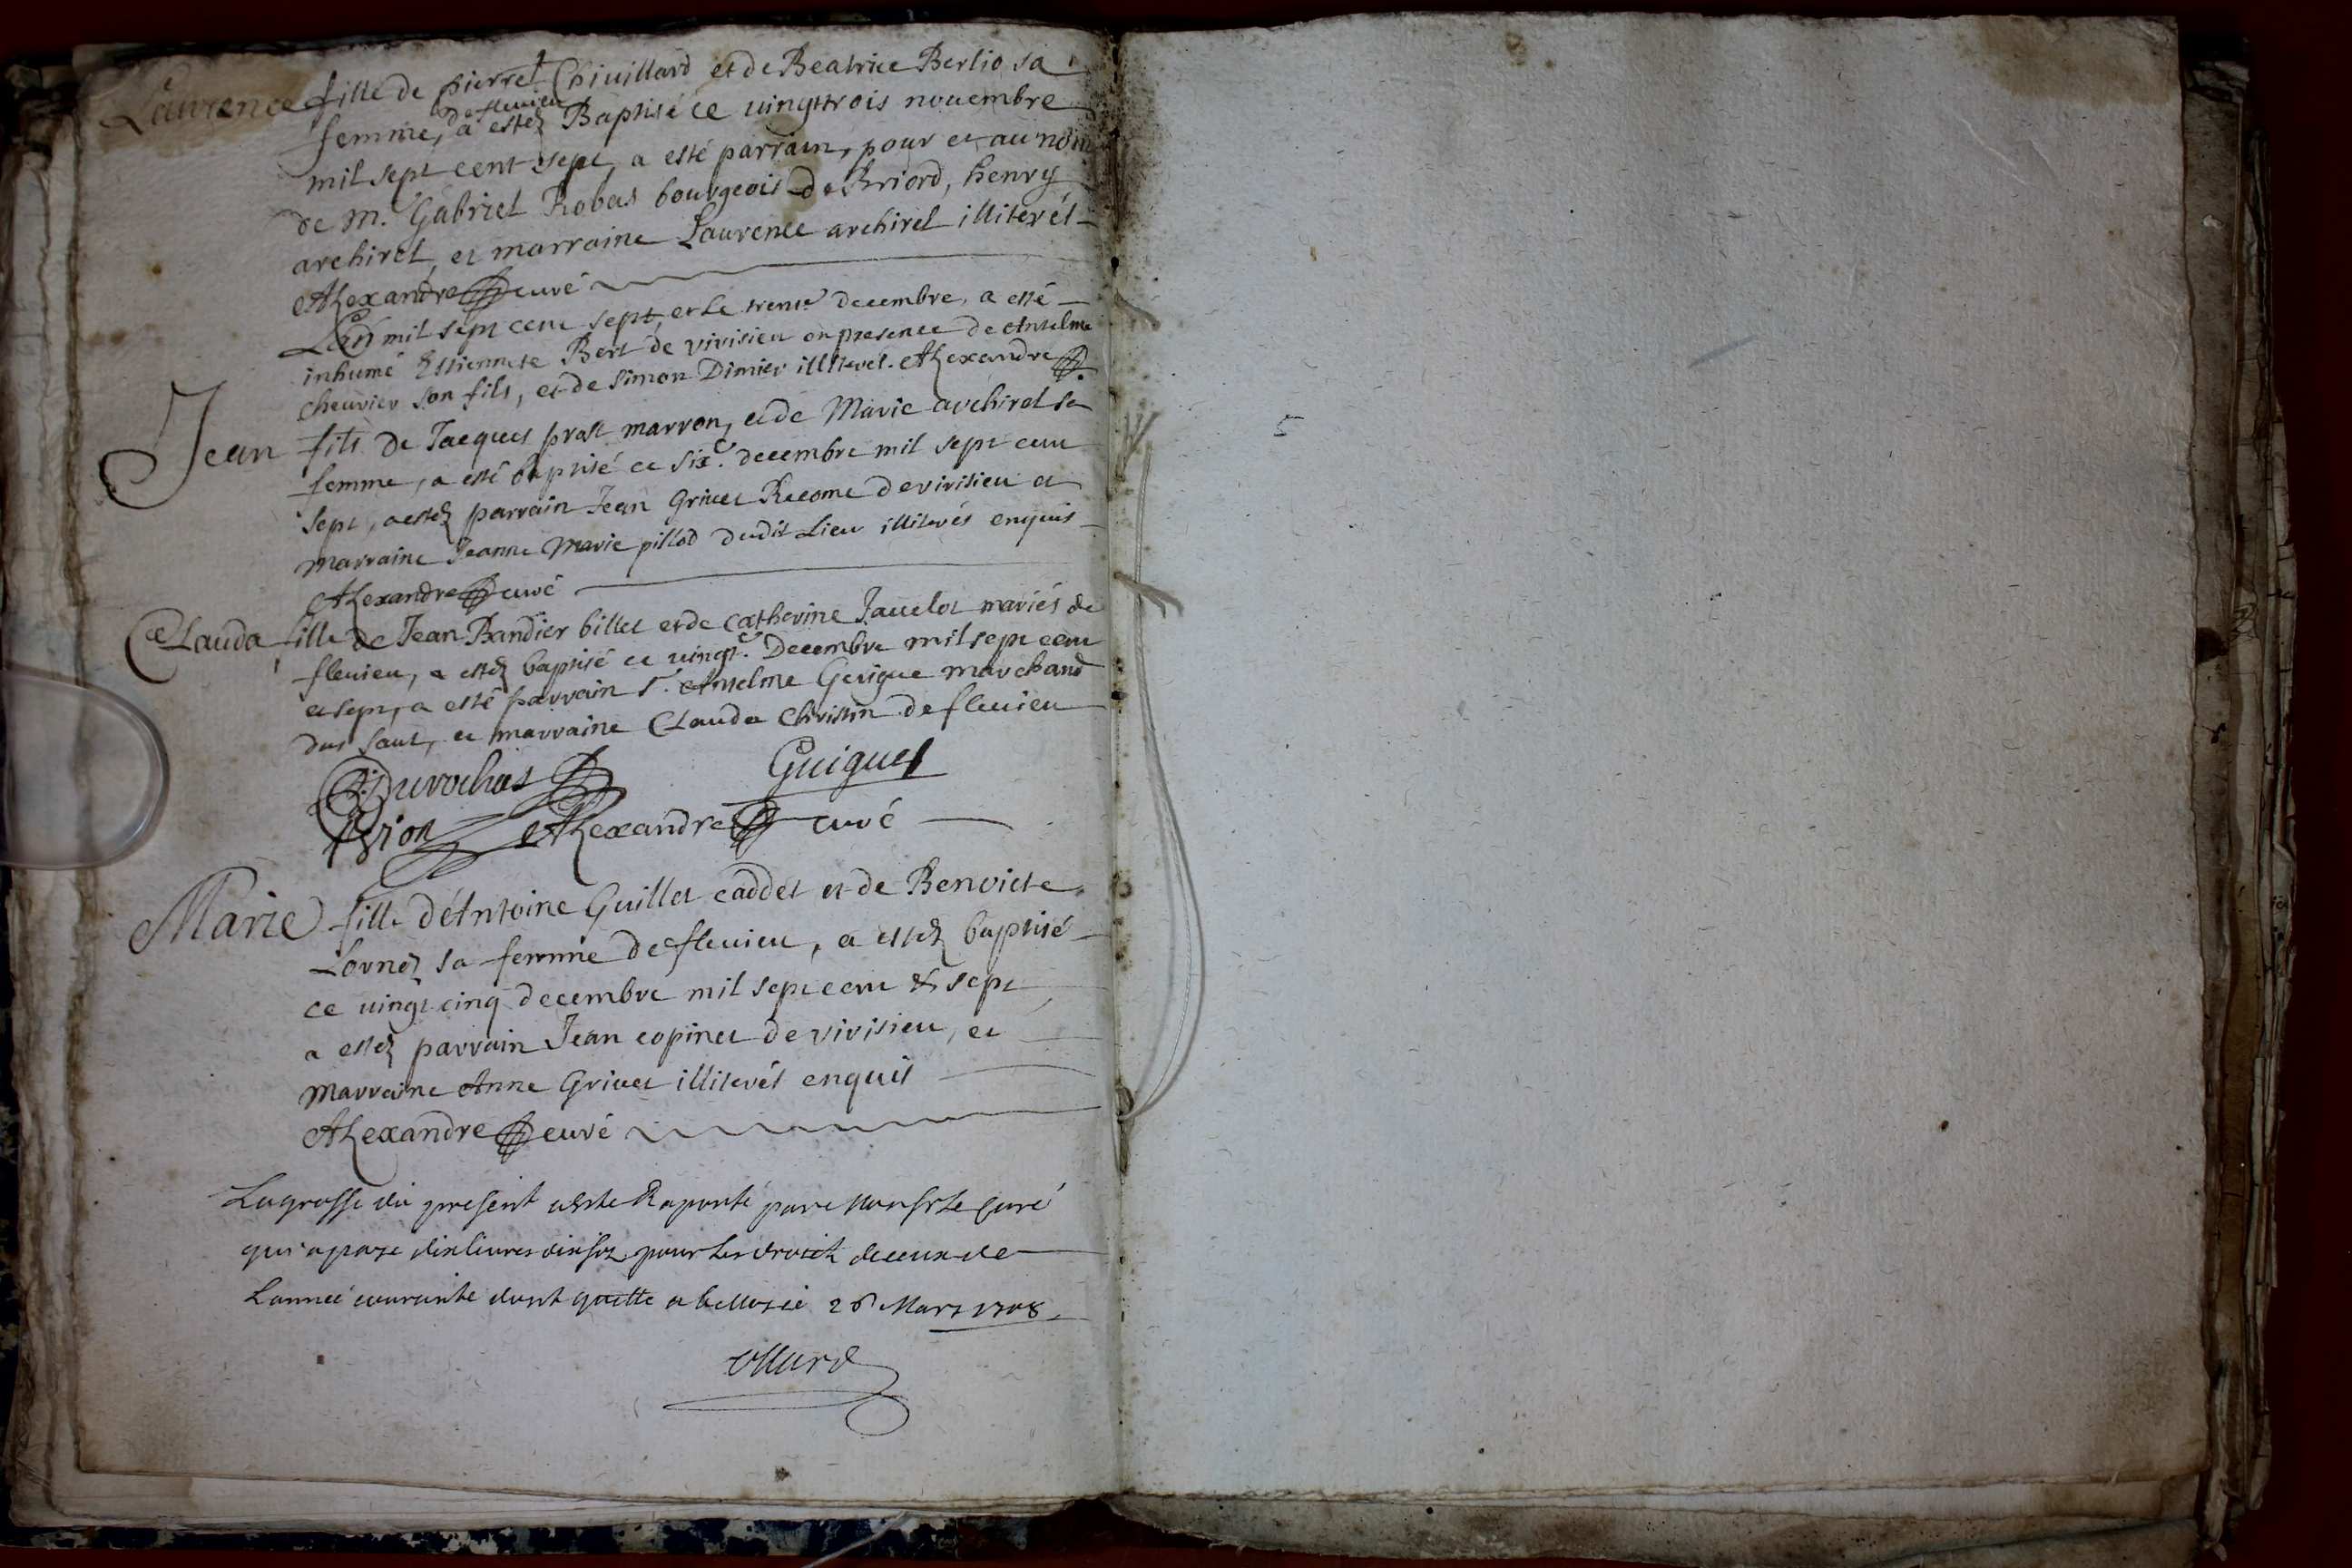 Laurence fille de pierre Chiuillard et de Beatrice Berlio sa
de fleuieu
femme, a estez Baptisé ce uingttrois nouembre
mil sept cent sept, a esté parrain, pour et au nom
de m.r Gabriel Robas bourgeois de Briord, henry
archirel, et marraine Laurence archirel illiterés
Alexandre curé
Lan mil sept cent sept, et le trente decembre, a esté
inhumé Estiennete Bert de virisieu en presence de Anselme
cheurier son fils, et de simon Dimier illiterés. Alexandre
Jean fils de Jacques prost marron, et de Marie archirel sa
femme, a esté baptisé ce six.e decembre mil sept cent
sept, a estez parrain Jean Griuet de virisieu et
marraine Jeanne Marie pillod dudit Lieu illiterés enquis
Alexandre curé
Clauda fille de Jean Bandier billet et de Catherine Jauelot mariés de
fleuieu, a estez baptisé ce uingt.e Decembre mil sept cent
et sept, a esté parrain s.r Anselme Guigue marchand
du saut, et marraine Clauda Christin de fleuieu
Durochas Guiguet
Alexandre curé
Marie fille d'Antoine Guillet caddet et de Benoicte
Lornez sa femme de fleuieu, a estez baptisé
ce uingt cinq decembre mil sept cent & sept
a estez parrain Jean copinet de virisieu, et
marraine Anne Griuet illiterés enquis
Alexandre curé
La grosse du present Raporté par le curé
qui a paye dix liures dix solz pour les droictz de ceux de
Lannee courante dont quitte a 26 Mars 1708